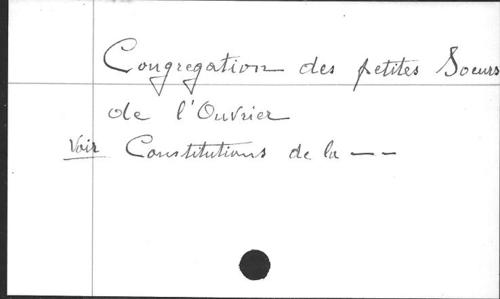 Congregation des petites Soeurs
de l'Ouvrier
Voir Constitutions de la — —